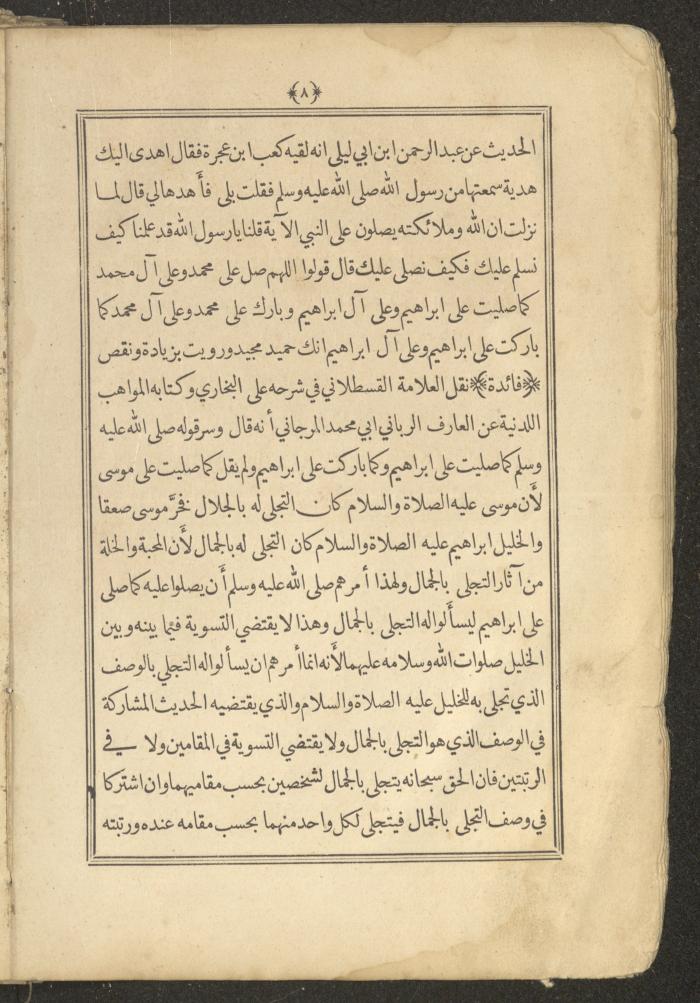 ﴿٨﴾
الحديث عن عبد الرحمن ابن ابي ليلى انه لقيه كعب ابن عجرة فقال اهدى اليك
هدية سمعتها من رسول الله صلى الله عليه وسلم فقلت بلى فأهدهالي قال لما
نزلت ان الله وملائكته يصلون على النبي الآية قلنا يا رسول الله قد علمنا كيف
نسلم عليك فكيف نصلى عليك قال قولوا اللهم صل على محمد وعلى آل محمد
كما صليت على ابراهيم وعلى آل ابراهيم وبارك على محمد وعلى آل محمد كما
باركت على ابراهيم وعلى آل ابراهيم انك حميد مجيد ورويت بزيادة ونقص
﴿فائدة﴾ نقل العلامة القسطلاني في شرحه على البخاري وكتابه المواهب
اللدنية عن العارف الرباني ابي محمد المرجاني أنه قال وسر قوله صلى الله عليه
وسلم كما صليت على ابراهيم وكما باركت على ابراهيم ولم يقل كما صليت على موسى
لأن موسى عليه الصلاة والسلام كان التجلى له بالجلال فخرَّ موسى صعقا
والخليل ابراهيم عليه الصلاة والسلام كان التجلى له بالجمال لأن المحبة والخلة
من آثار التجلى بالجمال ولهذا أمرهم صلى الله عليه وسلم أن يصلوا عليه كما صلى
على ابراهيم ليسألوا له التجلى بالجمال وهذا لا يقتضي التسوية فيما بينه وبين
الخليل صلوات الله وسلامه عليهما لأنه انما أمرهم ان يسألوا له التجلي بالوصف
الذي تجلى به للخليل عليه الصلاة والسلام والذي يقتضيه الحديث المشاركة
في الوصف الذي هو التجلى بالجمال ولا يقتضي التسوية في المقامين ولا في
الرتبتين فان الحق سبحانه يتجلى بالجمال لشخصين بحسب مقاميهما وان اشتركا
في وصف التجلى بالجمال فيتجلى لكل واحد منهما بحسب مقامه عنده ورتبته